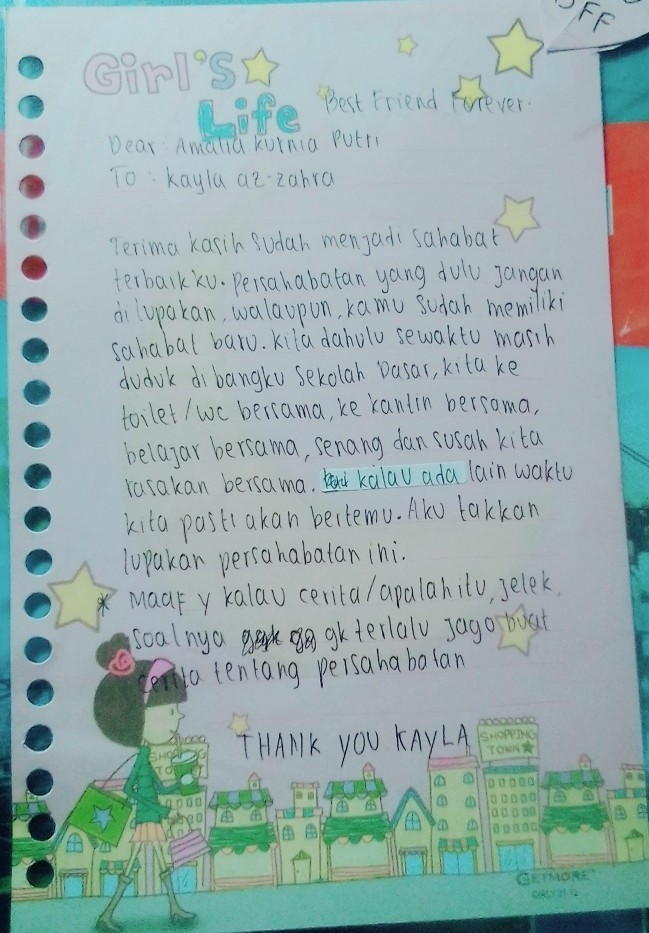 OFF
Girl's
Life
Best Friend Forever.
Dear : Amalia Kurnia Putri
To : Kayla az-zahra
Terima kasih sudah menjadi sahabat
terbaikku. Persahabatan yang dulu jangan
dilupakan, walaupun, kamu sudah memiliki
sahabat baru. Kita dahulu sewaktu masih
duduk di bangku sekolah Dasar, kita ke
toilet/wc bersama, ke kantin bersama,
belajar bersama, senang dan susah kita
rasakan bersama. kalau ada lain waktu
kita pasti akan bertemu. Aku takkan
lupakan persahabatan ini.
* Maaf y kalau cerita/apalah itu, jelek.
soalnya gk terlalu jago buat
cerita tentang persahabatan
THANK YOU KAYLA
SHOPPING
TOWN
SHOPPING
TOWN
GETMORE